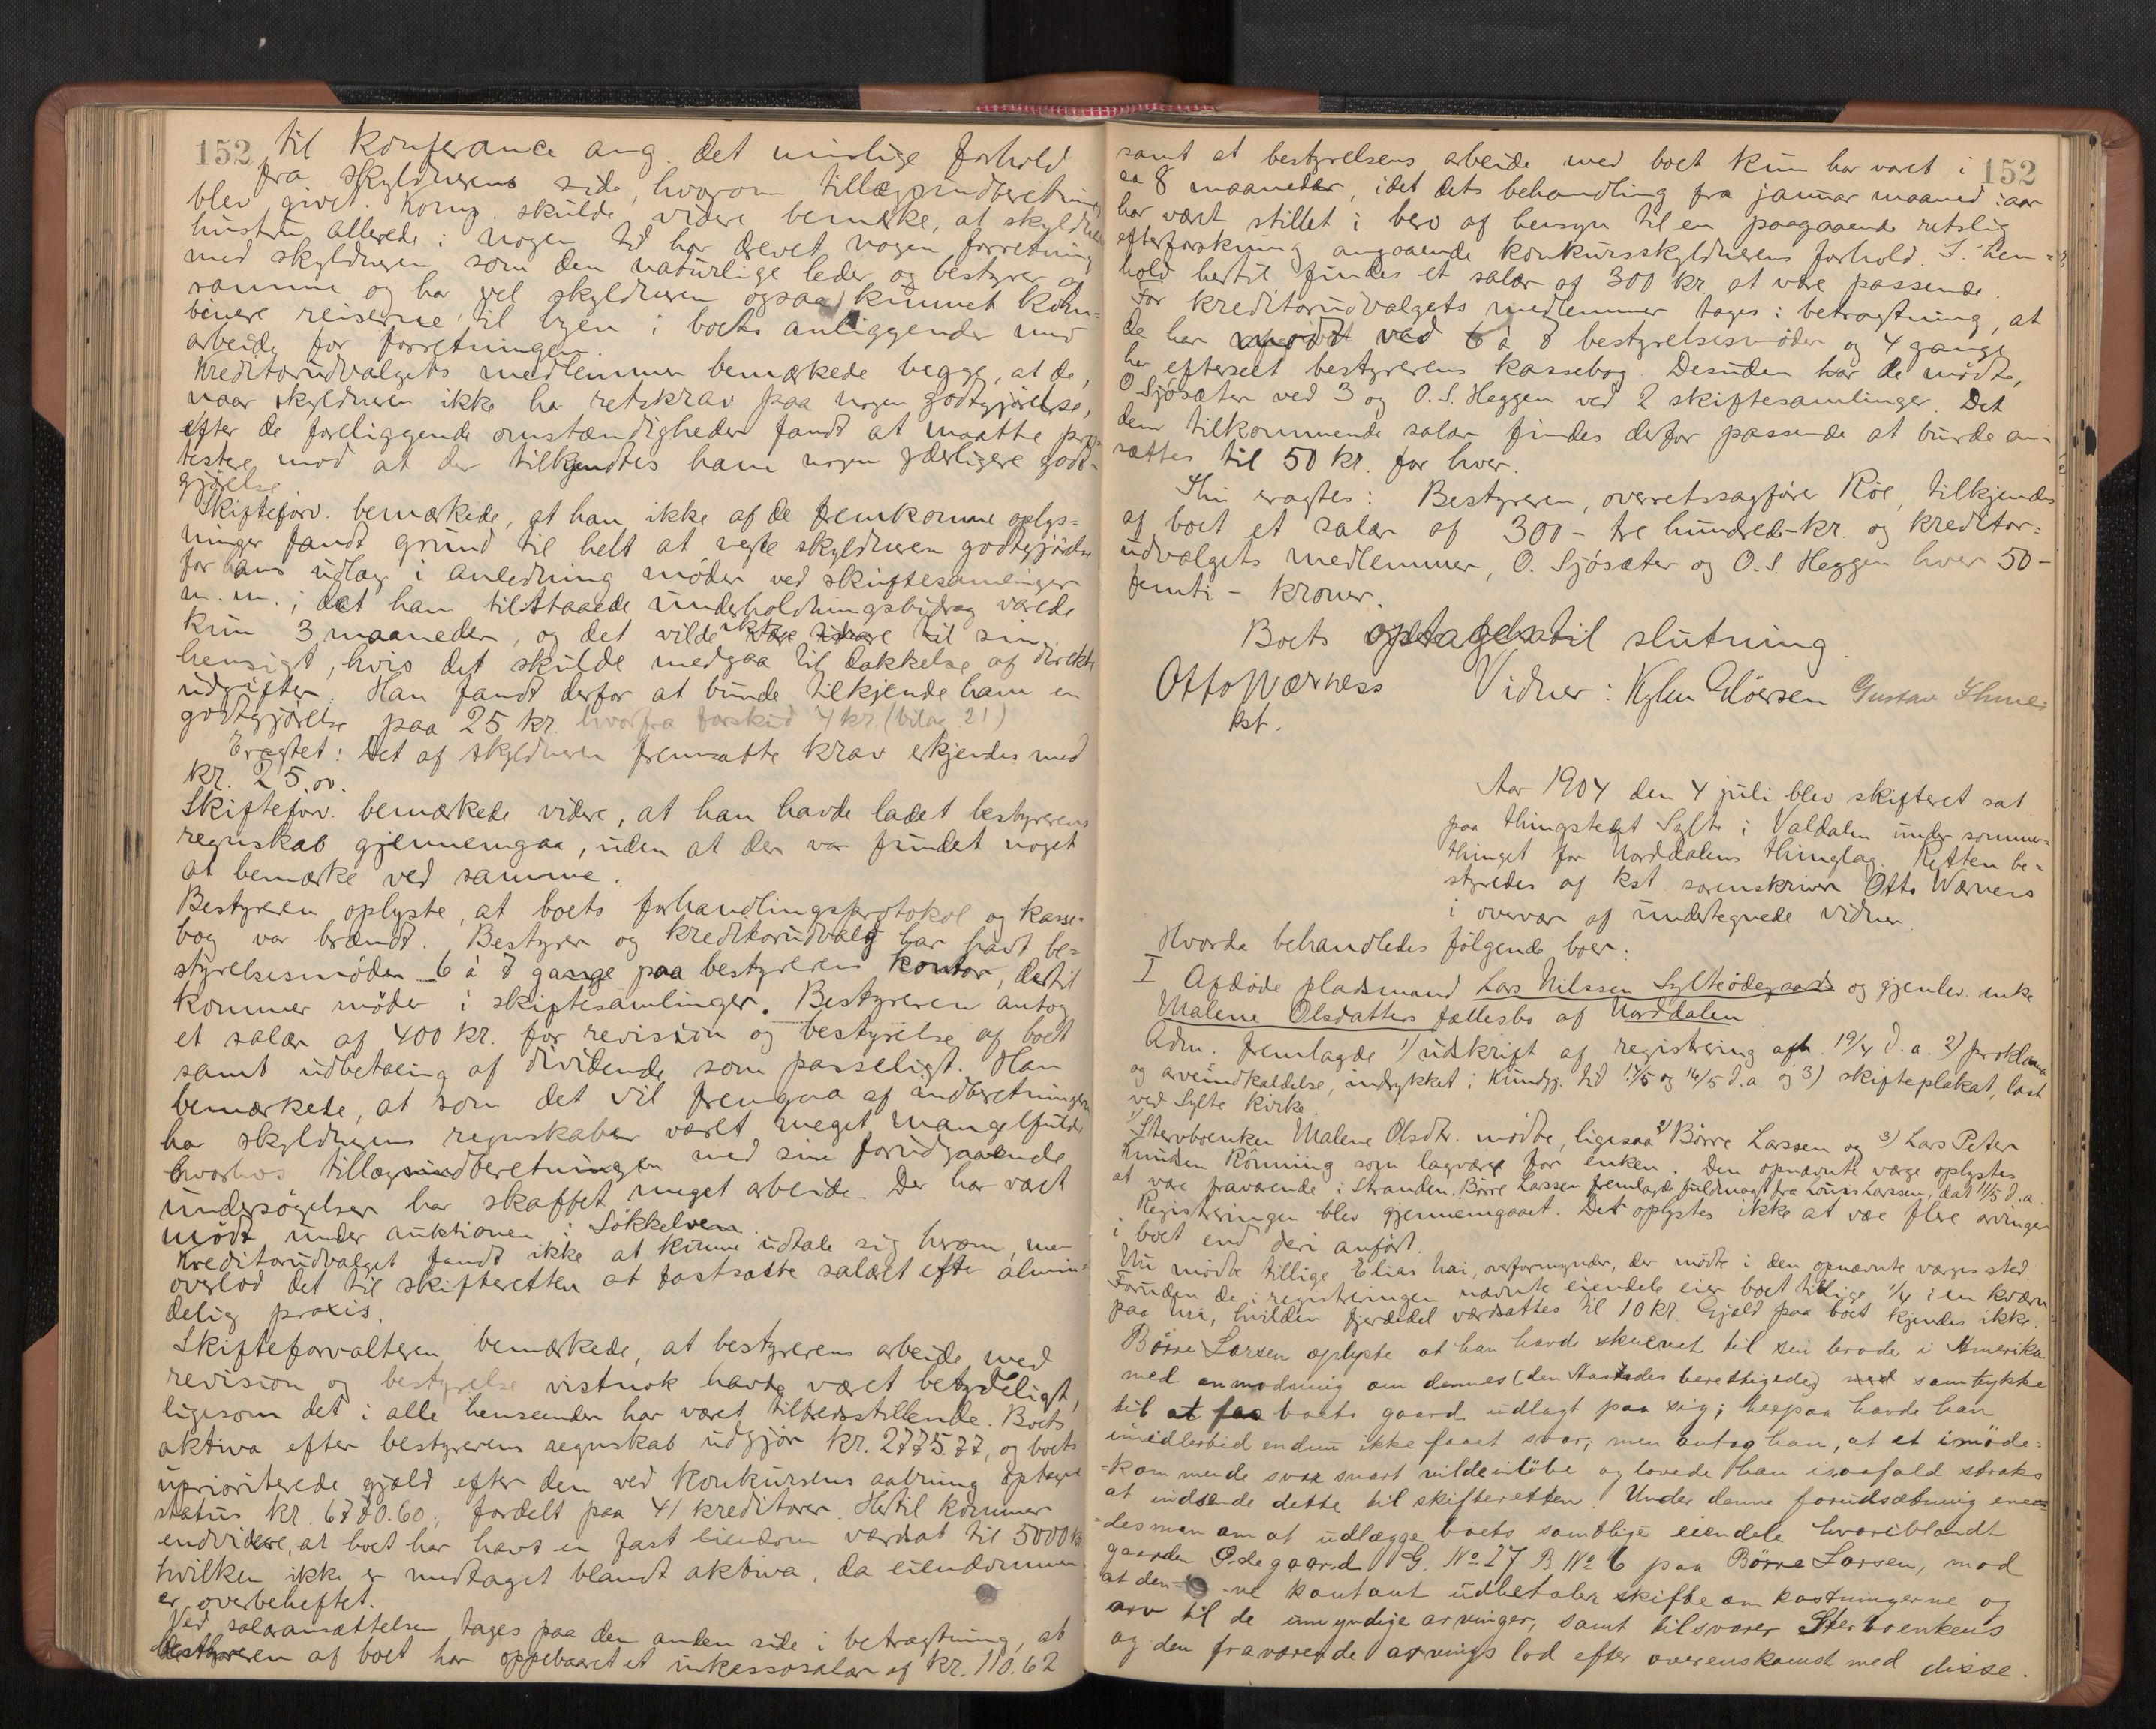 152 til konferance ang. det uvislige forhold
fra skyldnerens side, hvorom tillægsindberetning
blev givet. Komp. skulde videre bemærke, at skyldnerens
hustru allerede i nogen tid har drevet nogen forretning
med skyldneren som den naturlige leder og bestyrer af
samme og har vel skyldneren ogsaa kunnet kom-
binere reiserne til byen i boets anliggender med
arbeide for forretningen.
Kreditorudvalgets medlemmer bemærkede begge, at de,
naar skyldneren ikke har retskrav paa nogen godtgjørelse,
efter de foreliggende omstændigheder fandt at maatte pro-
testere mod at der tilkjendtes ham nogen yderligere godt-
gjørelse
Skifteforv. bemærkede, at han ikke af de fremkomne oplys-
ninger fandt grund til helt at negte skyldneren godtgjørelse
for hans udlæg i anledning møder ved skiftesamlinger
m. m.; det ham tilstaaede underholdningsbidrag varede
kun 3 maaneder, og det vilde til sin
hensigt, hvis det skulde medgaa til dækkelse af direkte
udgifter. Han fandt derfor at burde tilkjende ham en
godtgjørelse paa 25 kr. hvorfra forskud 4 kr. (bilag 21)
Eragtet: Det af skyldneren fremsatte krav erkjendes med
kr. 25.00.
Skifteforv. bemærkede videre, at han havde ladet bestyrerens
regnskab gjennemgaa, uden at der var fundet noget
at bemærke ved samme.
Bestyreren oplyste, at boets forhandlingsprotokol og kasse-
bog var brændt. Bestyrer og kreditorudvalg har havt be-
styrelsesmøder 6 à 8 gange paa bestyrerens kontor, dertil
kommer møder i skiftesamlinger. Bestyreren antog
et salær af 400 kr. for revision og bestyrelse af boet
samt udbetaling af dividende som passeligt. Han
bemærkede, at som det vil fremgaa af indberetningen
har skyldnerens regnskaber været meget mangelfulde
hvorhos tillægsindberetningen med sine forudgaaende
undersøgelser har skaffet meget arbeide. Der har været
mødt under auktionen i Søkkelven.
Kreditorudvalget fandt ikke at kunne udtale sig herom, men
overlod det til skifteretten at fastsætte salæret efter almin-
delig praxis.
Skifteforvalteren bemærkede, at bestyrerens arbeide med
revision og bestyrelse vistnok havde været betydeligt,
ligesom det i alle henseender har været tilfredsstillende. Boets
aktiva efter bestyrerens regnskab udgjør kr. 2775.77, og boets
uprioriterede gjæld efter den ved konkursens aabning optagne
status kr. 6780.60, fordelt paa 41 kreditorer. Hertil kommer
endvidere, at boet har havt en fast eiendom værdsat til 5000 kr
hvilken ikke er medtaget blandt aktiva, da eiendommen
er overbeheftet.
Ved salæransættelsen tages paa den anden side i betragtning, at
bestyreren af boet har oppebaaret et inkassosalær af kr. 110.62
samt at bestyrelsens arbeide med boet kun har varet i 152
ca 8 maaneder, idet dets behandling fra januar maaned i aar
har været stillet i bero af hensyn til en paagaaende retslig
efterforskning angaaende konkursskyldnerens forhold. I hen-
hold hertil findes et salær af 300 kr. at være passende.
For kreditorudvalgets medlemmer tages i betragtning, at
de har mødt ved 6 à 8 bestyrelsesmøder og 4 gange
har efterseet bestyrerens kassebog. Desuden har de mødt,
O. Sjøsæter ved 3 og O. S. Heggen ved 2 skiftesamlinger. Det
dem tilkommende salær findes derfor passende at burde an-
sættes til 50 kr. for hver.
Thi eragtes: Bestyreren, overretssagfører Roe, tilkjendes
af boet et salær af 300 - tre hundred - kr. og kreditor-
udvalgets medlemmer, O. Sjøsæter og O. S. Heggen hver 50 -
femti - kroner.
Boets optages til slutning.
Otto Wærness Vidner: Gustav
kst.
Aar 1904 den 4 juli blev skifteret sat
paa thingstedet Sylte i Valdalen under sommer-
thinget for Norddalens thinglag. Retten be-
styredes af kst. sorenskriver Otto Wærness
i overvær af undertegnede vidner.
Hvorda behandledes følgende boer:
I Afdøde pladsmand Lars Nilssen Sylteødegaard og gjenlev. enke
Malene Olsdatters fællesbo af Norddalen
Adm. fremlagde 1) udskrift af registrering afh. 19/4 d. a. 2) proklama
og arveindkaldelse, indrykket i Kundgj. tid. 12/5 og 16/5 d. a. og 3) skifteplakat, læst
ved Sylte kirke.
1) Stervboenken Malene Olsdtr. mødte, ligesaa 2) Børre Larssen og 3) Lars Peter
Knudsen Rønning som lagværge for enken. Den opnævnte værge oplystes
at være fraværende i Stranden. Børre Larssen fremlagde fuldmagt fra Louis Larssen, dat 11/5 d. a.
Registreringen blev gjennemgaaet. Det oplystes ikke at være flere arvinger
i boet end deri anført.
Nu mødte tillige Elias Muri, overformynder, der mødte i den opnævnte værges sted.
Foruden de i registreringen nævnte eiendele eier boet tillige 1/4 i en kværn
paa Muri, hvilken fjerdedel værdsattes til 10 kr. Gjæld paa boet kjendes ikke.
Børre Larsen oplyste at han havde skrevet til sin broder i Amerika
med anmodning om dennes (den Aasædesberettigedes) samtykke
til at faa boets gaard udlagt paa sig; herpaa havde han
imidlertid endnu ikke faaet svar; men antog han, at et imøde-
-kommende svar snart vilde indløbe og lovede han isaafald straks
at indsende dette til skifteretten. Under denne forudsætning ene-
-des man om at udlægge boets samtlige eiendele hvoriblandt
gaarden Ødegaard G. No. 27 B No. 6 paa Børre Larsen, mod
at den- -ne kontant udbetaler skifteomkostningerne og
arv til de umyndige arvinger, samt tilsvarer Sterboenkens
og den fraværende arvings lod efter overenskomst med disse.